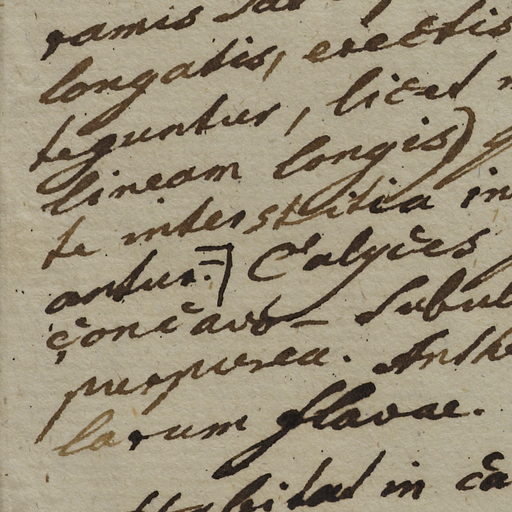 ramis
longatis, erectis
teguntur, licet
lineam longis)
te interstitia in
antur.] Calyces
concavo - subul
purpurea. Anthe
larum flavae.
Habitat in ca